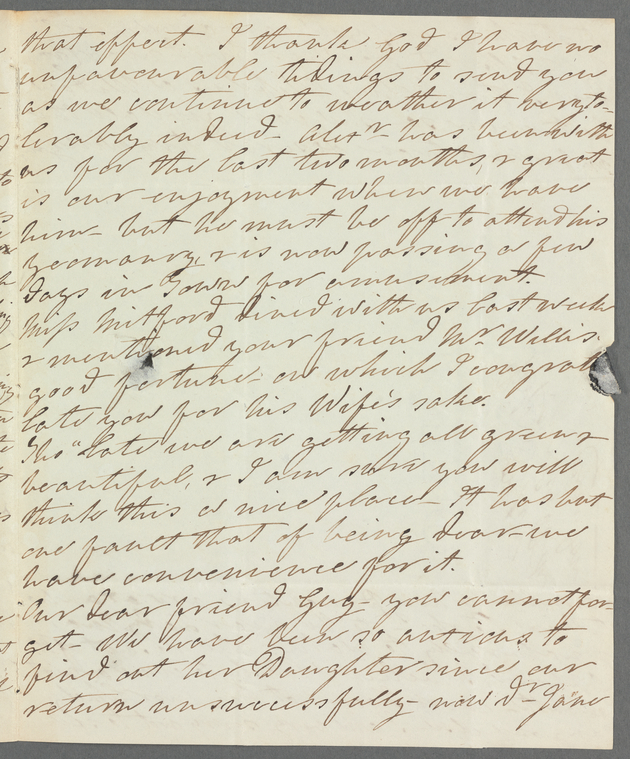 that effect. I thank God I have no
unfavourable tidings to send you
as we continue to weather it very to-
lerably indeed - Alexr has been with
us for the last two months, & great
is our enjoyment when we have
him - but he must be off to attend his
yeomanry, & is now passing a few
days in Town for amusement.
Miss Mitford dined with us last week
& mentioned your friend Mr. Willis'
good fortune - on which I congratu
late you for his Wife's sake.
Tho' late we are getting all green &
beautiful, & I am sure you will
think this a nice place - It has but
one fault that of being dear - we
have convenience for it.
Our dear friend Guy - you cannot for-
get - We have been so anxious to
find out her Daughter since our
return unsuccessfully - now dr Jane